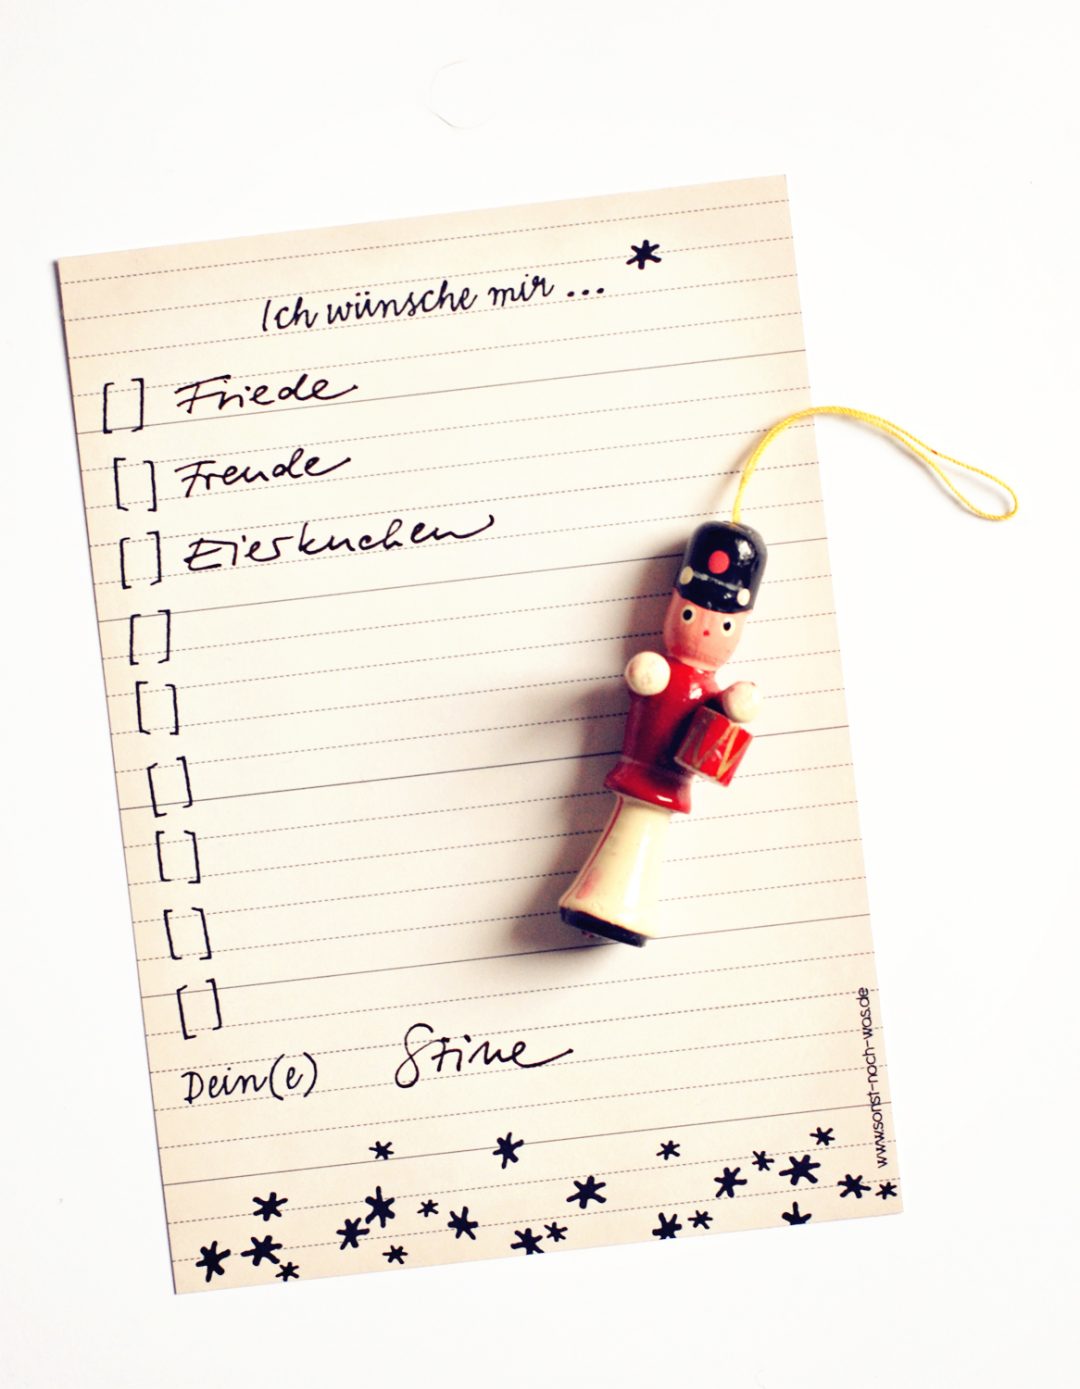 Ich wünsche mir ...
[ ] Friede
[ ] Freude
[ ] Eierkuchen
[ ]
[ ]
[ ]
[ ]
[ ]
[ ]
Dein(e) Stine
www.sonst-noch-was.de